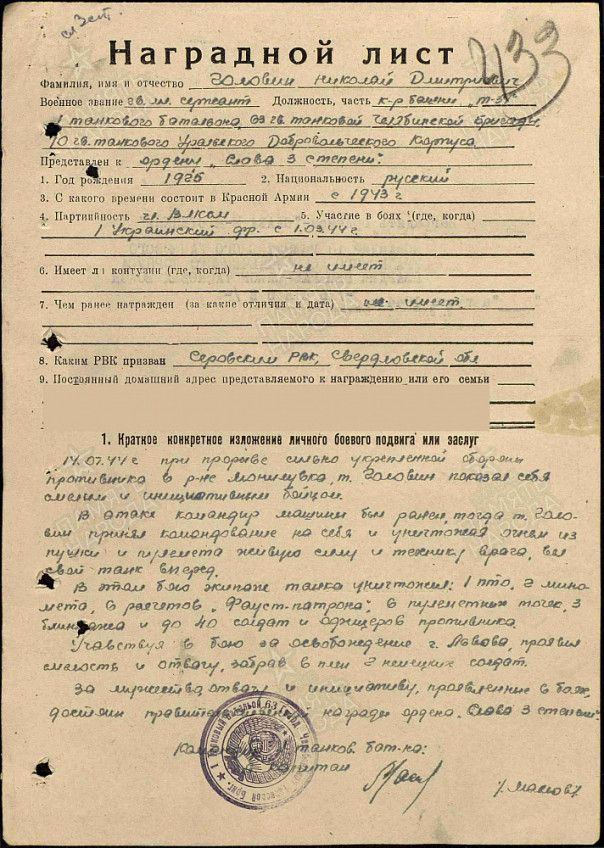 433
Наградной лист
Фамилия, имя и отчество Головин Николай Дмитриевич
Военное звание гв. мл. сержант Должность, часть к-р башни „Т-34"
1 танкового батальона, 63 гв. танковой Челябинской бригады
10 гв. танкового Уральского Добровольческого Корпуса
Представлен к ордену „Слава 3 степени".
1. Год рождения 1925 2. Национальность русский
3. С какого времени состоит в Красной Армии с 1943 г
4. Партийность чл. ВЛКСМ 5. Участие в боях (где, когда)
1 Украинский фр. с 1.03.44 г.
6. Имеет ли контузии (где, когда) не имеет
7. Чем ранее награжден (за какие отличия и дата) не имеет.
8. Каким РВК призван Серовским РВК, Свердловской обл
9. Постоянный домашний адрес представляемого к награждению или его семьи
1. Краткое конкретное изложение личного боевого подвига или заслуг
14.07.44 г при прорыве сильно укрепленной обороны
противника в р-не Монилувка, т. Головин показал себя
смелым и инициативным бойцом.
В атаке командир машины был ранен, тогда т. Голо-
вин принял командование на себя и уничтожая огнем из
пушки и пулемета живую силу и технику врага, вел
свой танк вперед.
В этом бою экипаж танка уничтожил: 1 пто, 2 мино-
мета, 6 расчетов „Фауст-патрона", 6 пулеметных точек, 3
блиндажа и до 40 солдат и офицеров противника.
Участвуя в бою за освобождение г. Львова, проявил
смелость и отвагу, забрав в плен 2 немецких солдат.
За мужество, отвагу и инициативу, проявленные в боях,
достоин награды ордена „Слава 3 степени".
танков. бат-на:
капитан